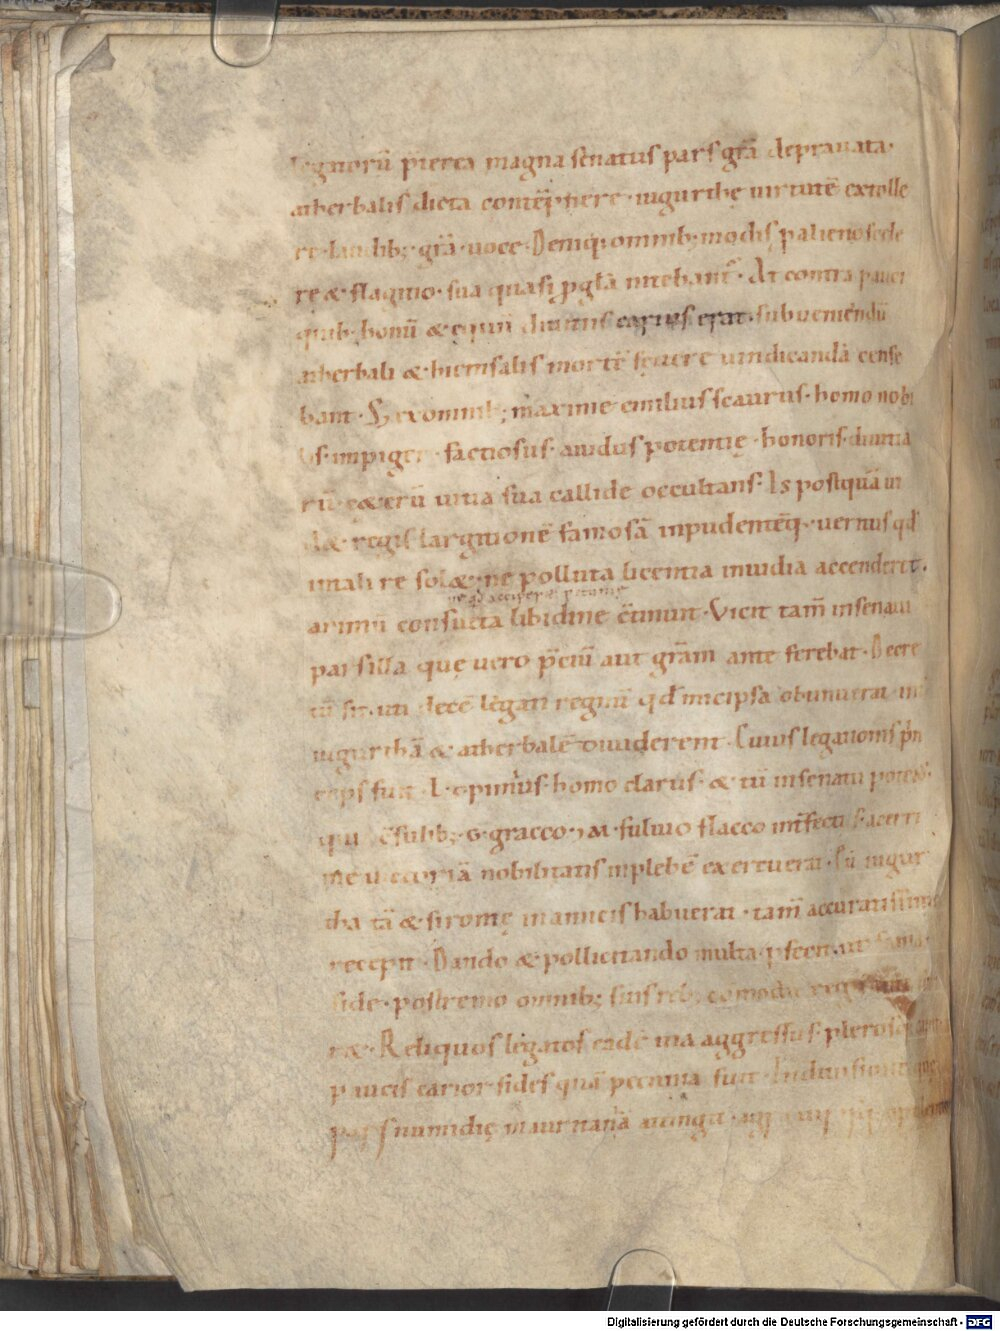 legatorū p̄terea magna senatus pars grā depravata.
atherbalis dicta contēpnere · iugurthę uirtutē extolle
re · laudib; · grā · uoce · Deniq; omnib; modis p alieno scele
re & flagitio · sua quasi p glā nitebant᷑ · At contra pauci
quib; bonū & equū diuitiis carius erat · subueniendū
atherbali & hiemsalis mortē seuere uindicandā cense
bant · Sed ex omnib; maxime emilius scaurus · homo nobi
lis · impiger · factiosus · auidus potentię · honoris · diuitia
rū · ceterū uitia sua callide occultans · Is postquā ui
d& regis largitionē famosā inpudentēq; · ueritus qd̄
in tali re sol&; ne polluta licentia inuidia accender&.
animū consueta libidine c̄tinuit · Vicit tam̄ in senatu
pars illa quę uero p̄ciū aut grām ante ferebat · Decre
tū fit · uti decē legati regnū qd̄ micipsa obtinuerat int̄
iugurthā & atherbalē diuiderent · Cuius legationis p̄n
ceps fuit · L · opimius · homo clarus · & tū in senatu potens ·
qui c̄sulib; · G · gracco · 7 M · fuluio flacco int̄fectis acerri
me uictoriā nobilitatis in plebē exercuerat · Eū iugur
tha tā & si romę in amicis habuerat · tam̄ accuratissime
recepit · Dando & pollicitando multa pfecit · ut fama
fide · postremo omnib; suis reb; cōmodū regis
r& · Reliquos legatos eadē uia aggressus · plerosq;
paucis carior fides quā pecunia fuit · In diuisione quę
pars numidię mauritaniā attingit · agro